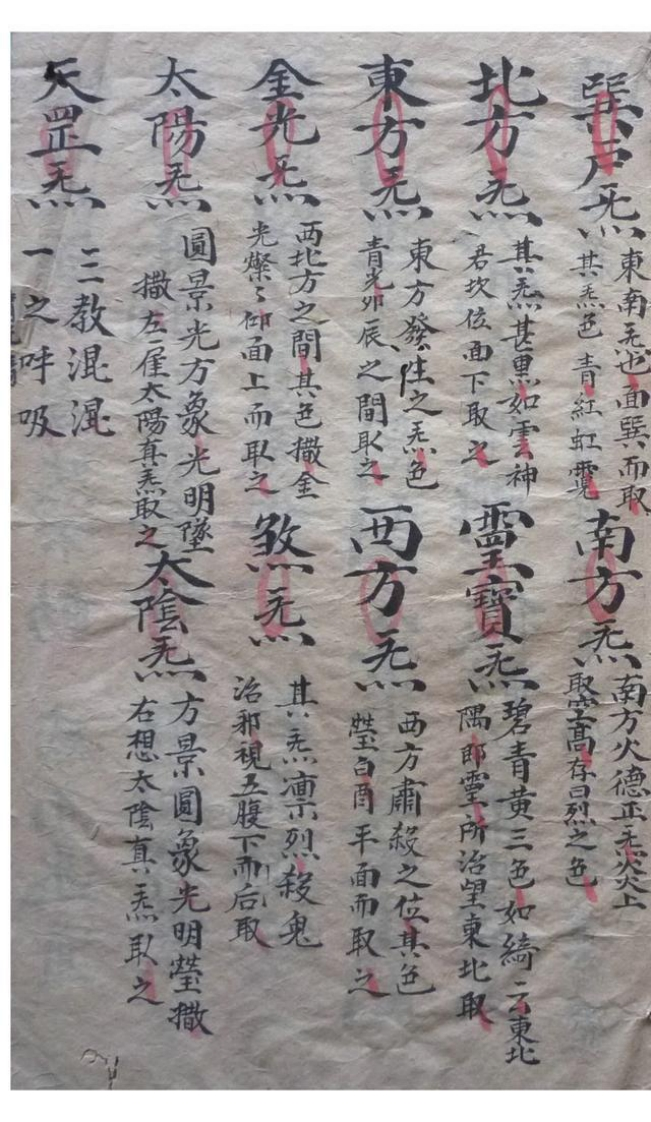 巽户炁
東南炁也面巽而取
其炁色青紅虹霓
南方炁
南方火德正炁火炎上
取室高存曰烈之色
北方炁
其炁甚黑如雲神
君坎位面下取之
靈寶炁
碧青黄三色如綺云東北
隅即靈所治望東北取
東方炁
東方發陞之炁色
青光卯辰之間取之
西方炁
西方肅殺之位其色
瑩白酉平面而取之
金光炁
西北方之間其色撒金
光燦々仰面上而取之
煞炁
其炁凛烈殺鬼
治邪視五腹下而后取
太陽炁
圓景光方象光明墜
撒左雇太陽真炁取之
太陰炁
方景圓象光明瑩撒
右想太陰真炁取之
天罡炁
三教混混
一之呼吸